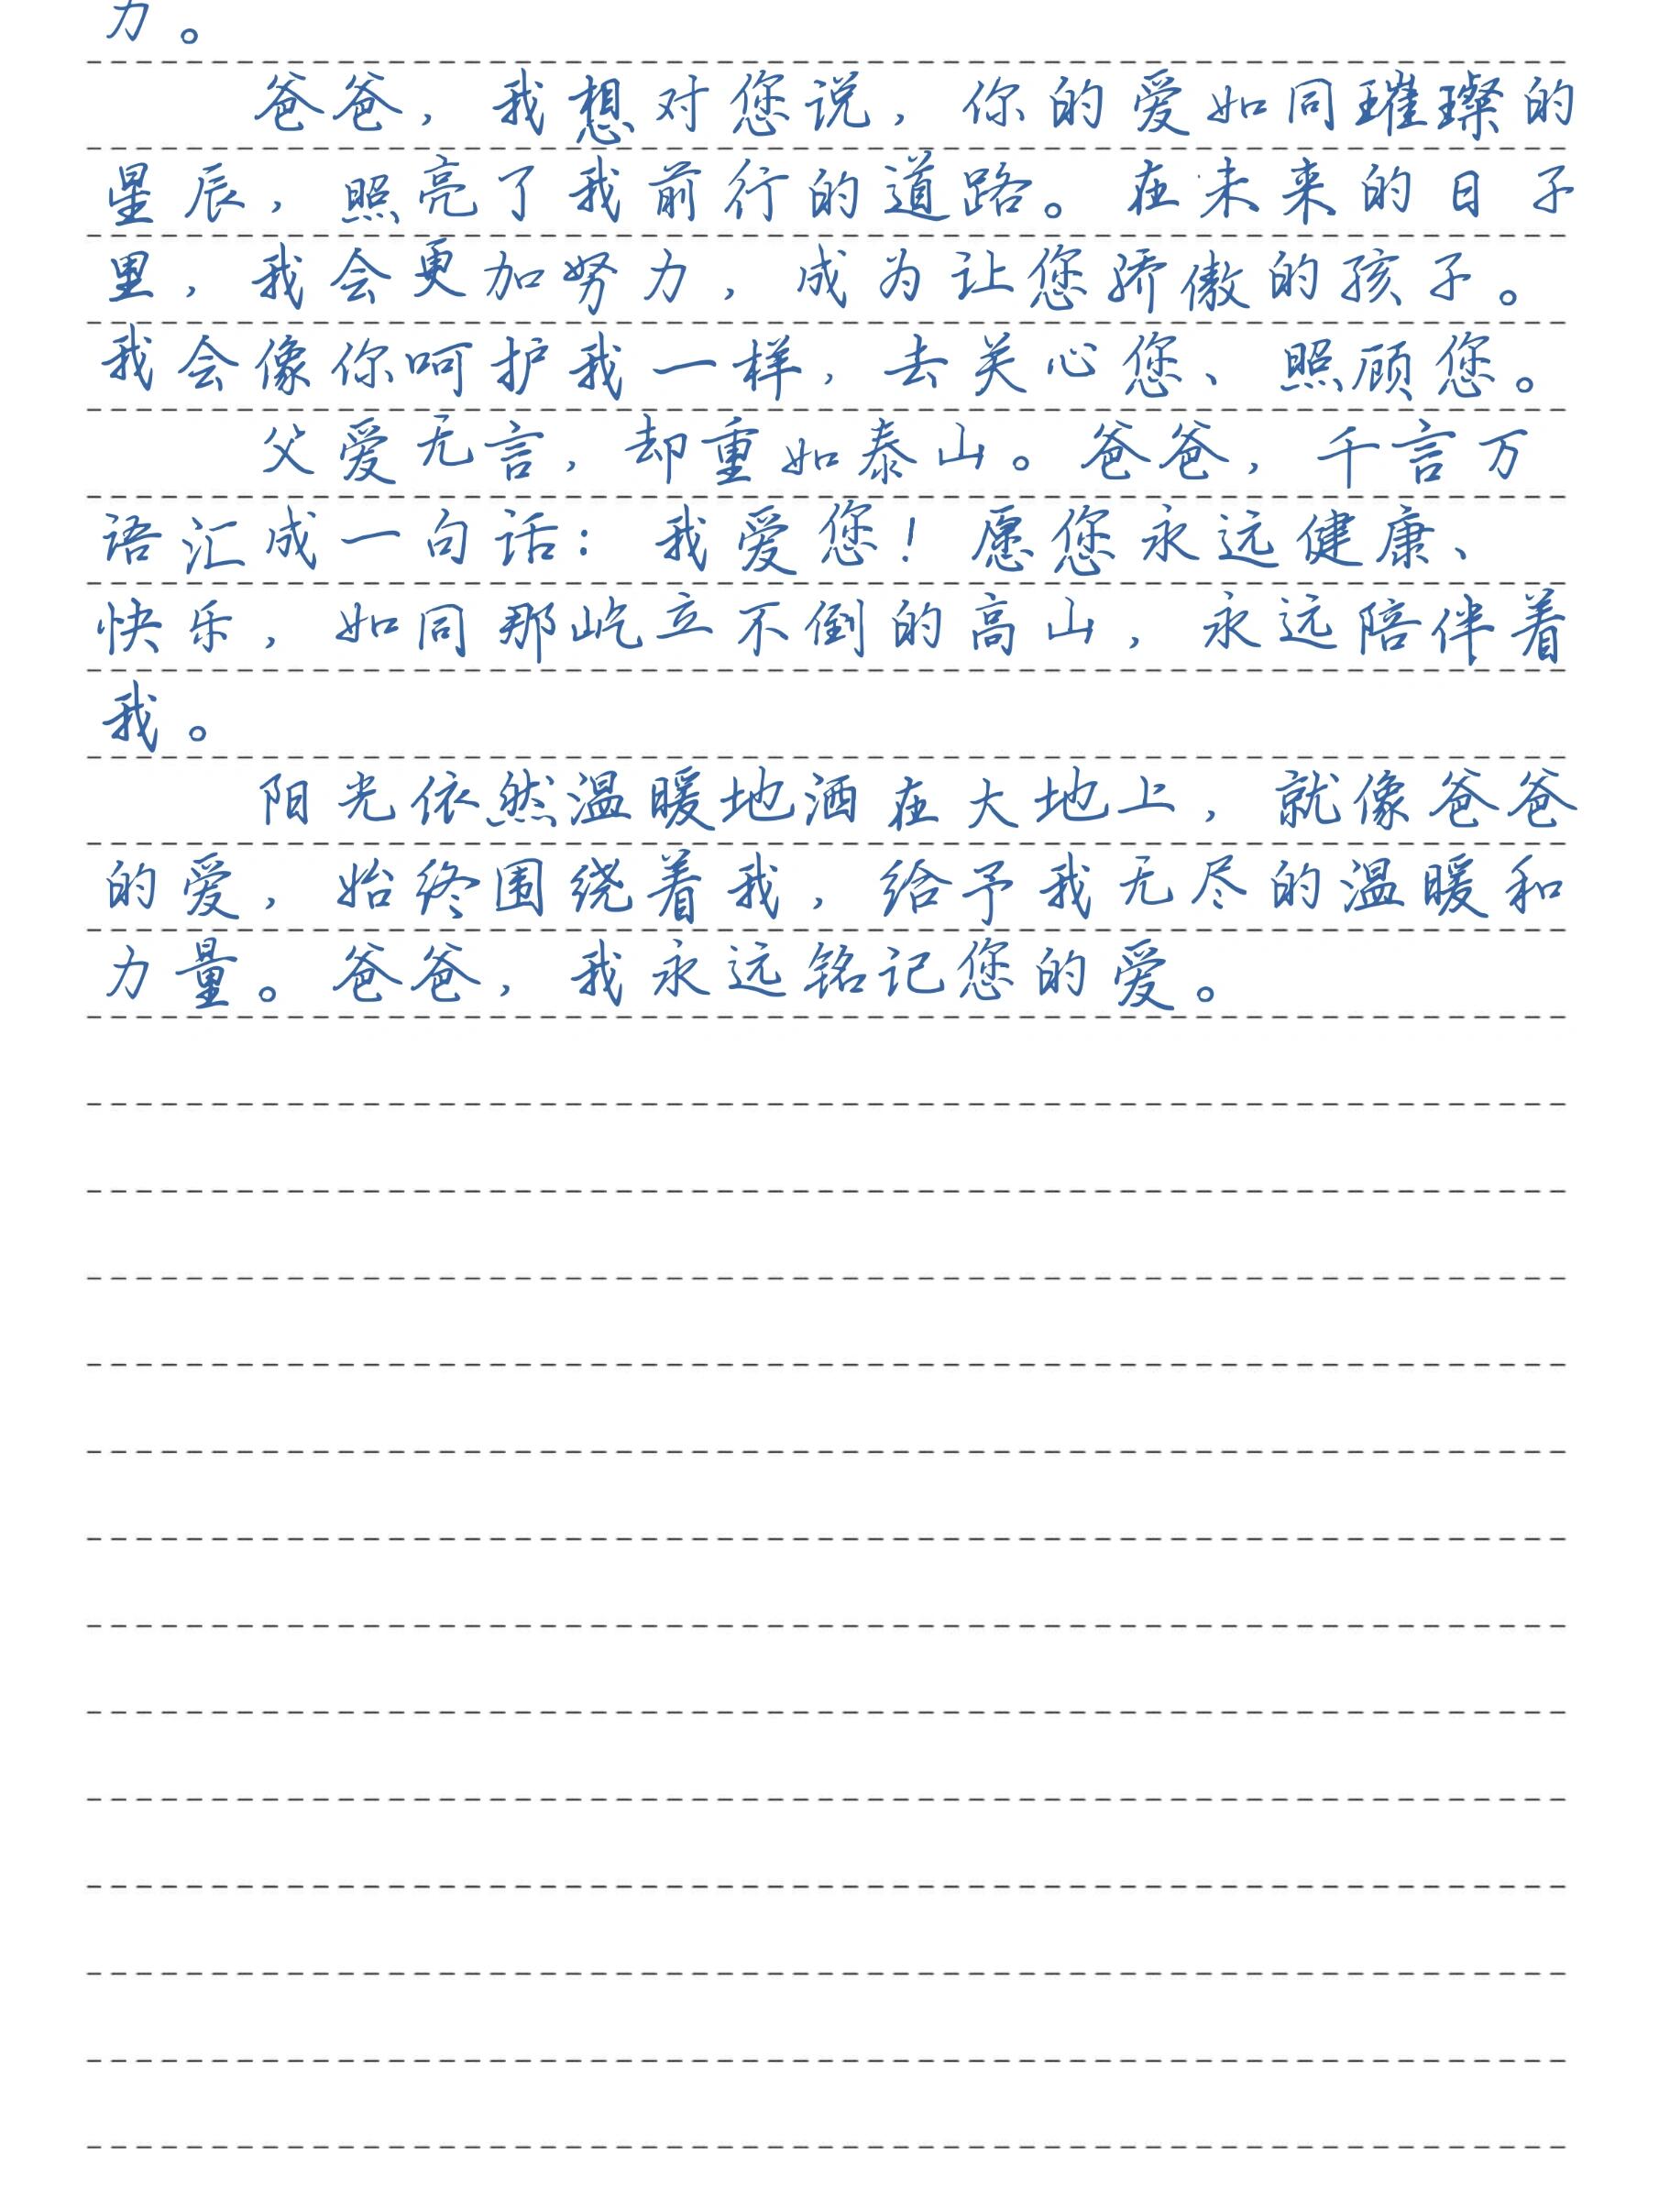 力。
爸爸，我想对您说，你的爱如同璀璨的
星辰，照亮了我前行的道路。在未来的日子
里，我会更加努力，成为让您骄傲的孩子。
我会像你呵护我一样，去关心您、照顾您。
父爱无言，却重如泰山。爸爸，千言万
语汇成一句话：我爱您！愿您永远健康、
快乐，如同那屹立不倒的高山，永远陪伴着
我。
阳光依然温暖地洒在大地上，就像爸爸
的爱，始终围绕着我，给予我无尽的温暖和
力量。爸爸，我永远铭记您的爱。